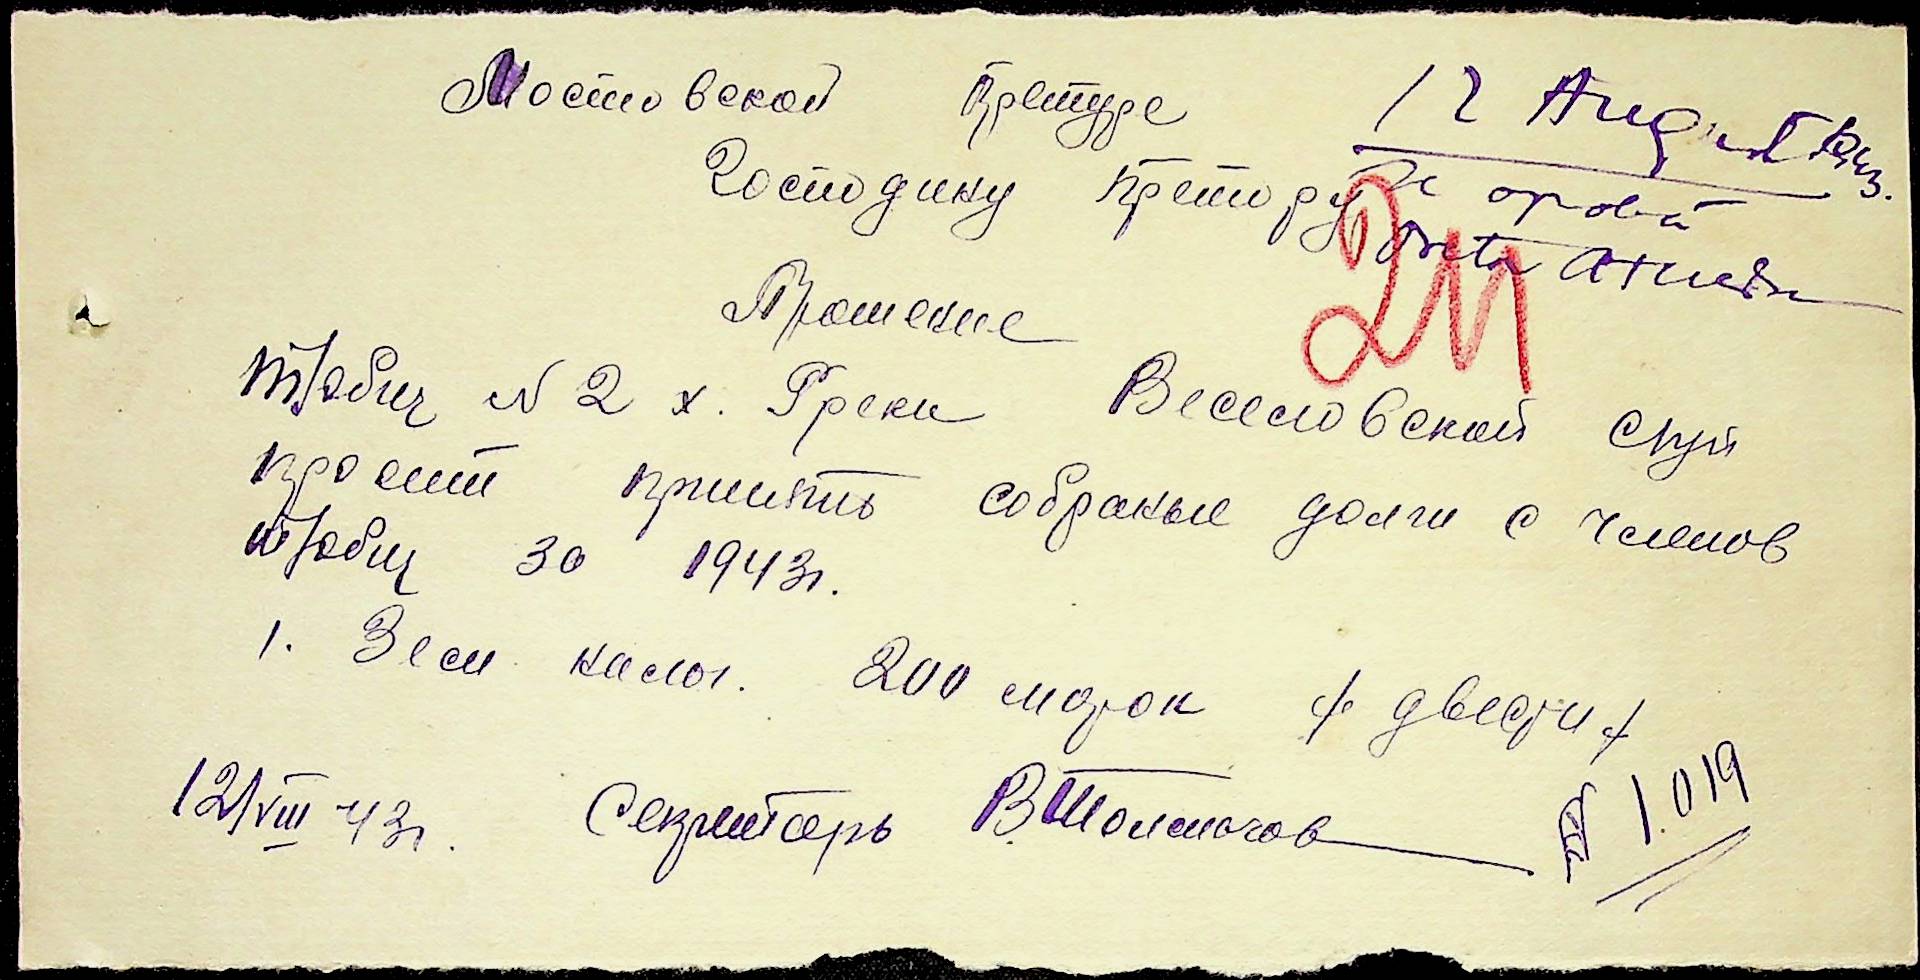 Мостовской Претуре
Господину Претору
12 August 943.
211
Прошение
т/общ N 2 х. Греки Веселовской
просит принять собраные долги с членов
т/общ за 1943г.
1. Зем налог. 200 марок /двести/
12/VIII 43г. Секретарь В Толмачов
1.019